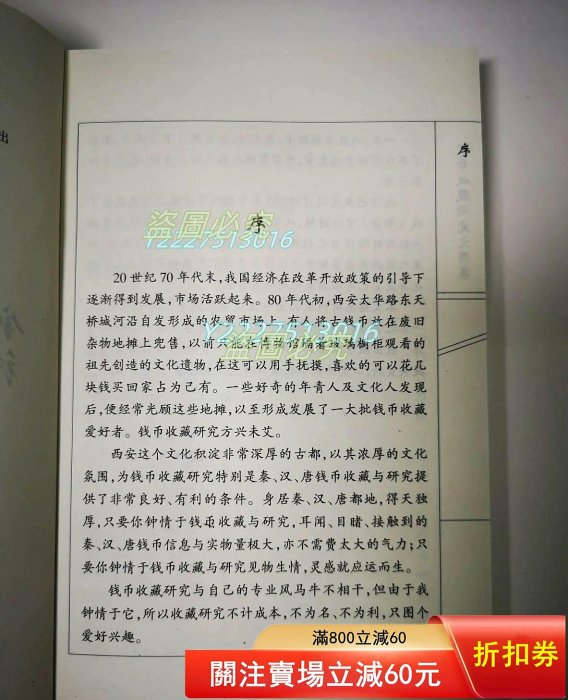 出
序
盜圖必究
Y2227513016
序
20世纪70年代末,我国经济在改革开放政策的引导下
逐渐得到发展,市场活跃起来。80年代初,西安太华路东天
桥城河沿自发形成的农贸市场上,有人将古钱币放在废旧
Y2227513016
杂物地摊上兜售,以前只能在博物馆隔着玻璃橱柜观看的
盜圖必究
祖先创造的文化遗物,在这可以用手抚摸,喜欢的可以花几
块钱买回家占为己有。一些好奇的年青人及文化人发现
后,便经常光顾这些地摊,以至形成发展了一大批钱币收藏
爱好者。钱币收藏研究方兴未艾。
西安这个文化积淀非常深厚的古都,以其浓厚的文化
氛围,为钱币收藏研究特别是秦、汉、唐钱币收藏与研究提
供了非常良好、有利的条件。身居秦、汉、唐都地,得天独
厚,只要你钟情于钱币收藏与研究,耳闻、目睹、接触到的
秦、汉、唐钱币信息与实物量极大,亦不需费太大的气力;只
要你钟情于钱币收藏与研究见物生情,灵感就应运而生。
钱币收藏研究与自己的专业风马牛不相干,但由于我
钟情于它,所以收藏研究不计成本,不为名、不为利,只图个
爱好兴趣。
滿800立減60
關注賣場立減60元
折扣券